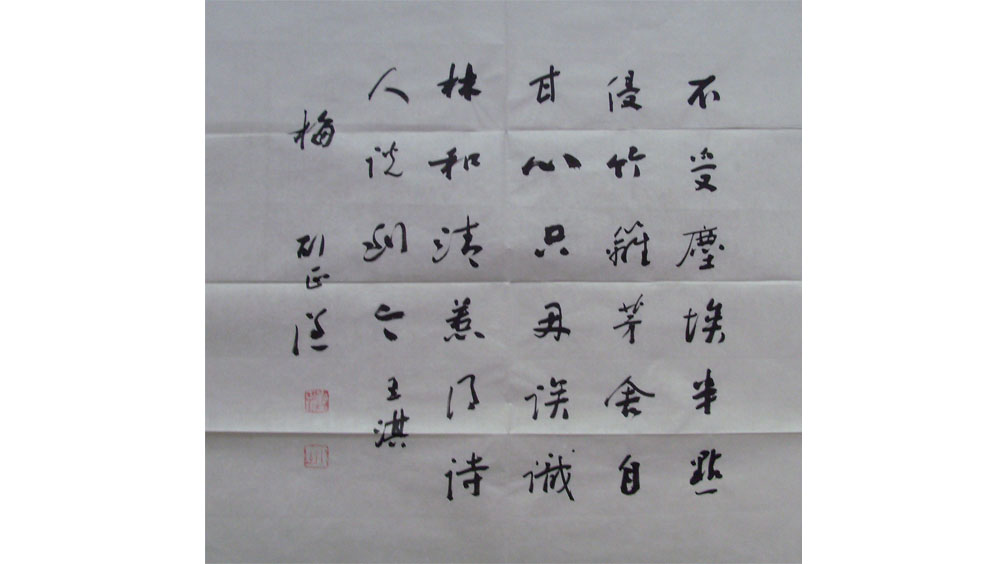 不受塵埃半點
侵竹籬茅舍自
甘心只因誤識
林和清惹得詩
人說到今 王淇
梅